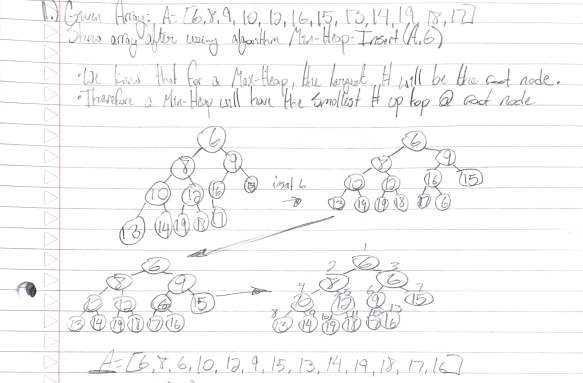 1.) Given Array: A = [6,8,9,10,12,16,15,13,14,19,18,17]
Show array after using algorithm Min-Heap-Insert(A,6)
• We know that for a Max-Heap, the largest # will be the root node.
• Therefore a Min-Heap will have the smallest # up top @ root node
6
8 9
10 12 16 15
13 14 19 18 17
insert 6
6
8 9
10 12 16 15
13 14 19 18 17 6
6
8 9
10 12 6 15
13 14 19 18 17 16
1
6
2 3
8 6
4 5 6 7
10 12 9 15
8 9 10 11 12 13
13 14 19 18 17 16
A=[6,8,6,10,12,9,15,13,14,19,18,17,16]